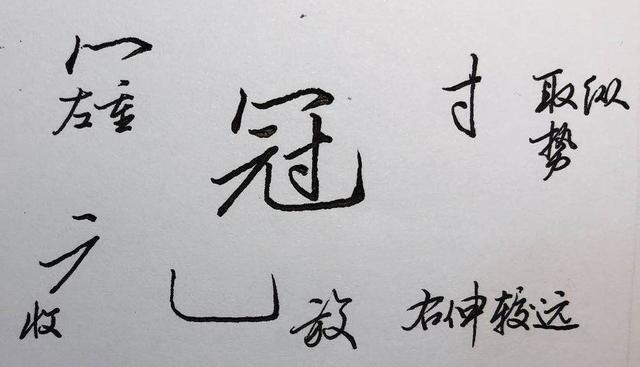 冖
左重
冠
寸
取纵
势
收
放
右伸较远